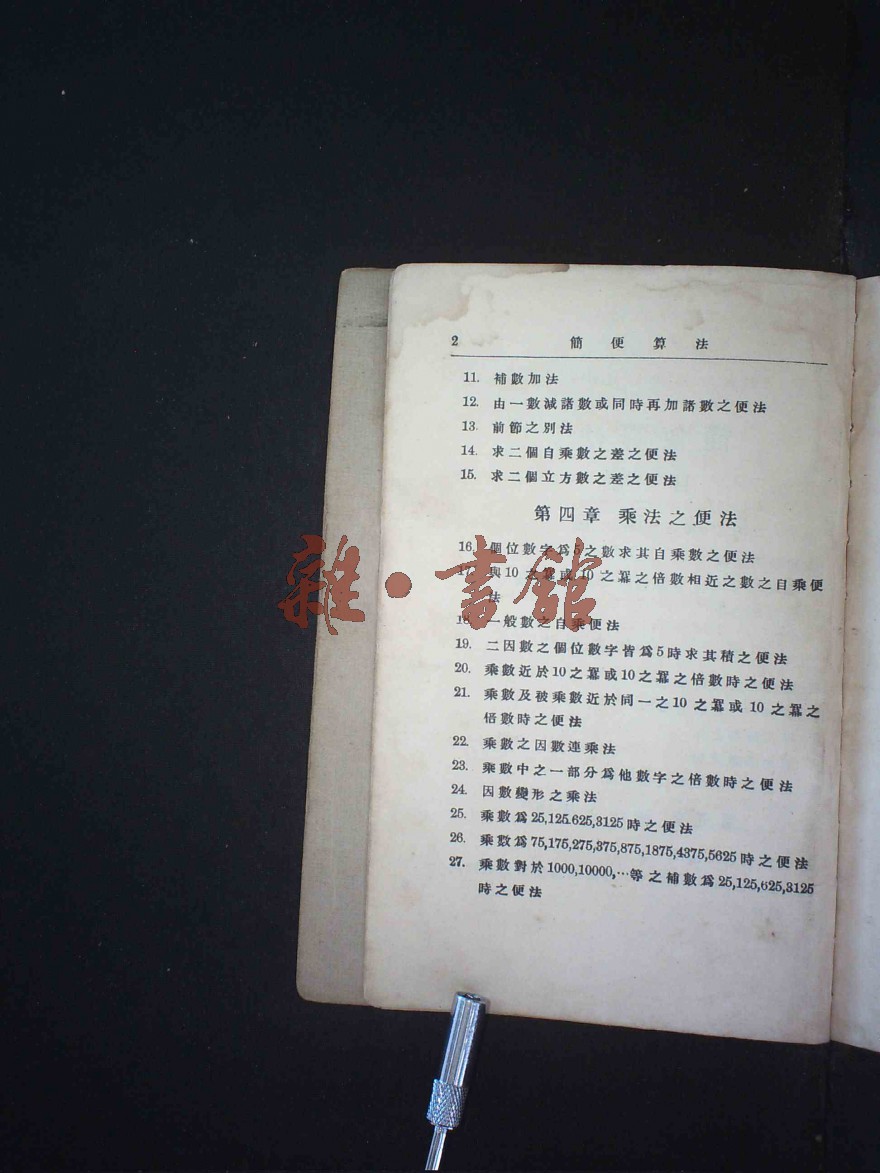 2 簡便算法
11. 補數加法
12. 由一數減諸數或同時再加諸數之便法
13. 前節之別法
14. 求二個自乘數之差之便法
15. 求二個立方數之差之便法
第四章 乘法之便法
16. 個位數字爲5之數求其自乘數之便法
17. 與10之羃或10之羃之倍數相近之數之自乘便
法
18. 一般數之自乘便法
19. 二因數之個位數字皆爲5時求其積之便法
20. 乘數近於10之羃或10之羃之倍數時之便法
21. 乘數及被乘數近於同一之10之羃或10之羃之
倍數時之便法
22. 乘數之因數連乘法
23. 乘數中之一部分爲他數字之倍數時之便法
24. 因數變形之乘法
25. 乘數爲25,125.625,3125時之便法
26. 乘數爲75,175,275,375,875,1875,4375,5625時之便法
27. 乘數對於1000,10000,…等之補數爲25,125,625,3125
時之便法
雜·書館